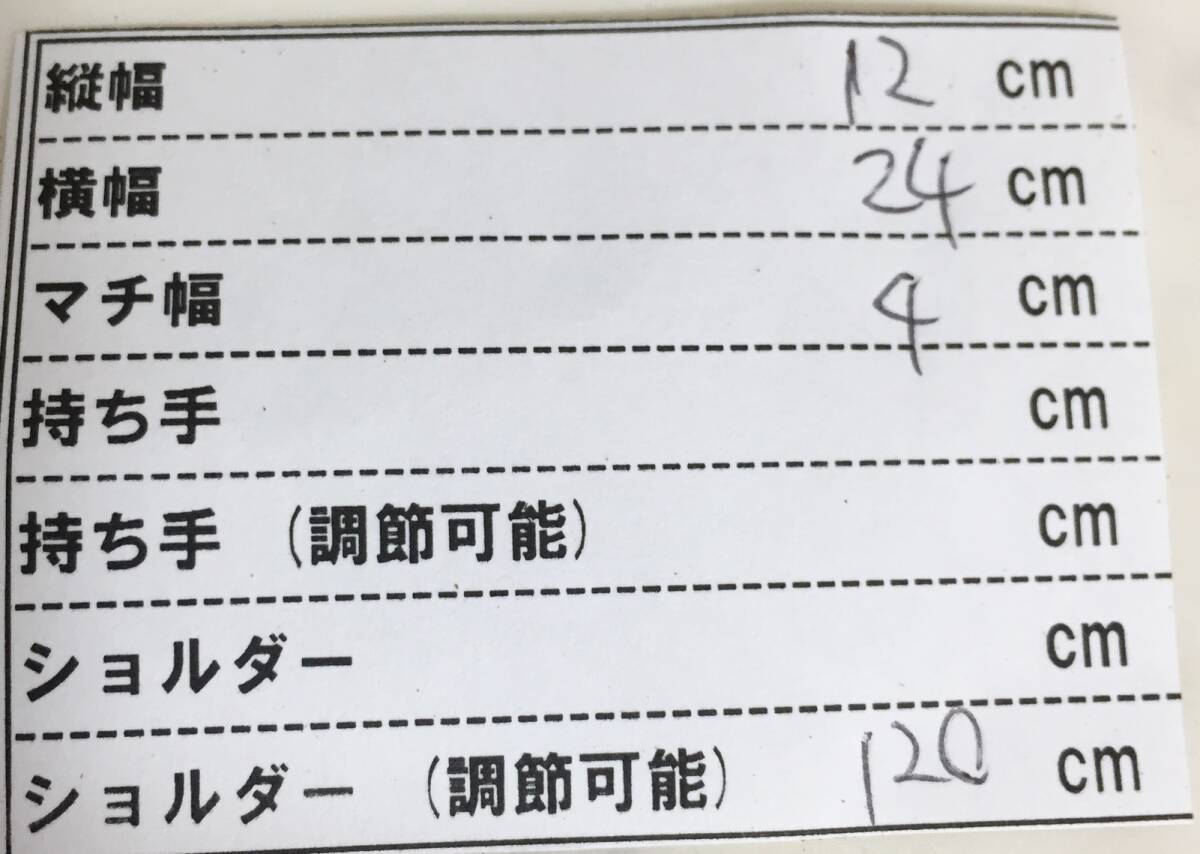 縦幅 12 cm
横幅 24 cm
マチ幅 4 cm
持ち手 cm
持ち手 (調節可能) cm
ショルダー cm
ショルダー (調節可能) 120 cm